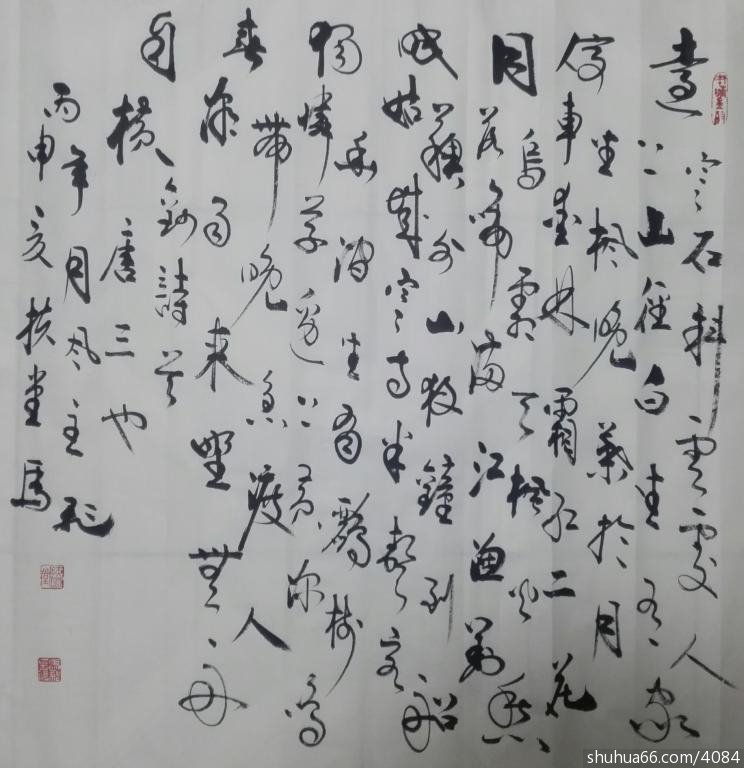 遠上寒山石徑斜白雲生處有人家
停車坐愛楓林晚霜葉紅於二月花
月落烏啼霜滿天江楓漁火對愁
眠姑蘇城外寒山寺夜半鐘聲到客船
獨憐幽草澗邊生上有黃鸝深樹鳴
春潮帶雨晚來急野渡無人舟
自橫錄唐詩三首也
丙申年夏月扶风堂主馬飛
shuhua66.com/4084